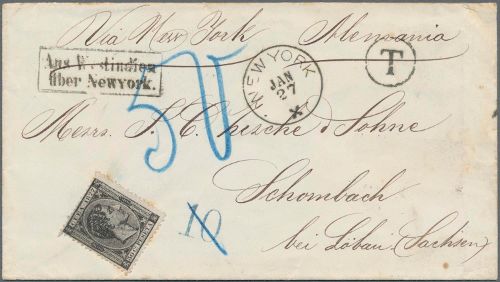 Via New York Alemania
Aus Westindien
über Newyork.
NEW YORK
JAN
27
T
50
Messrs. J. C. Hesche & Sohne
Schombach
10
bei Löbau (Sachsen)